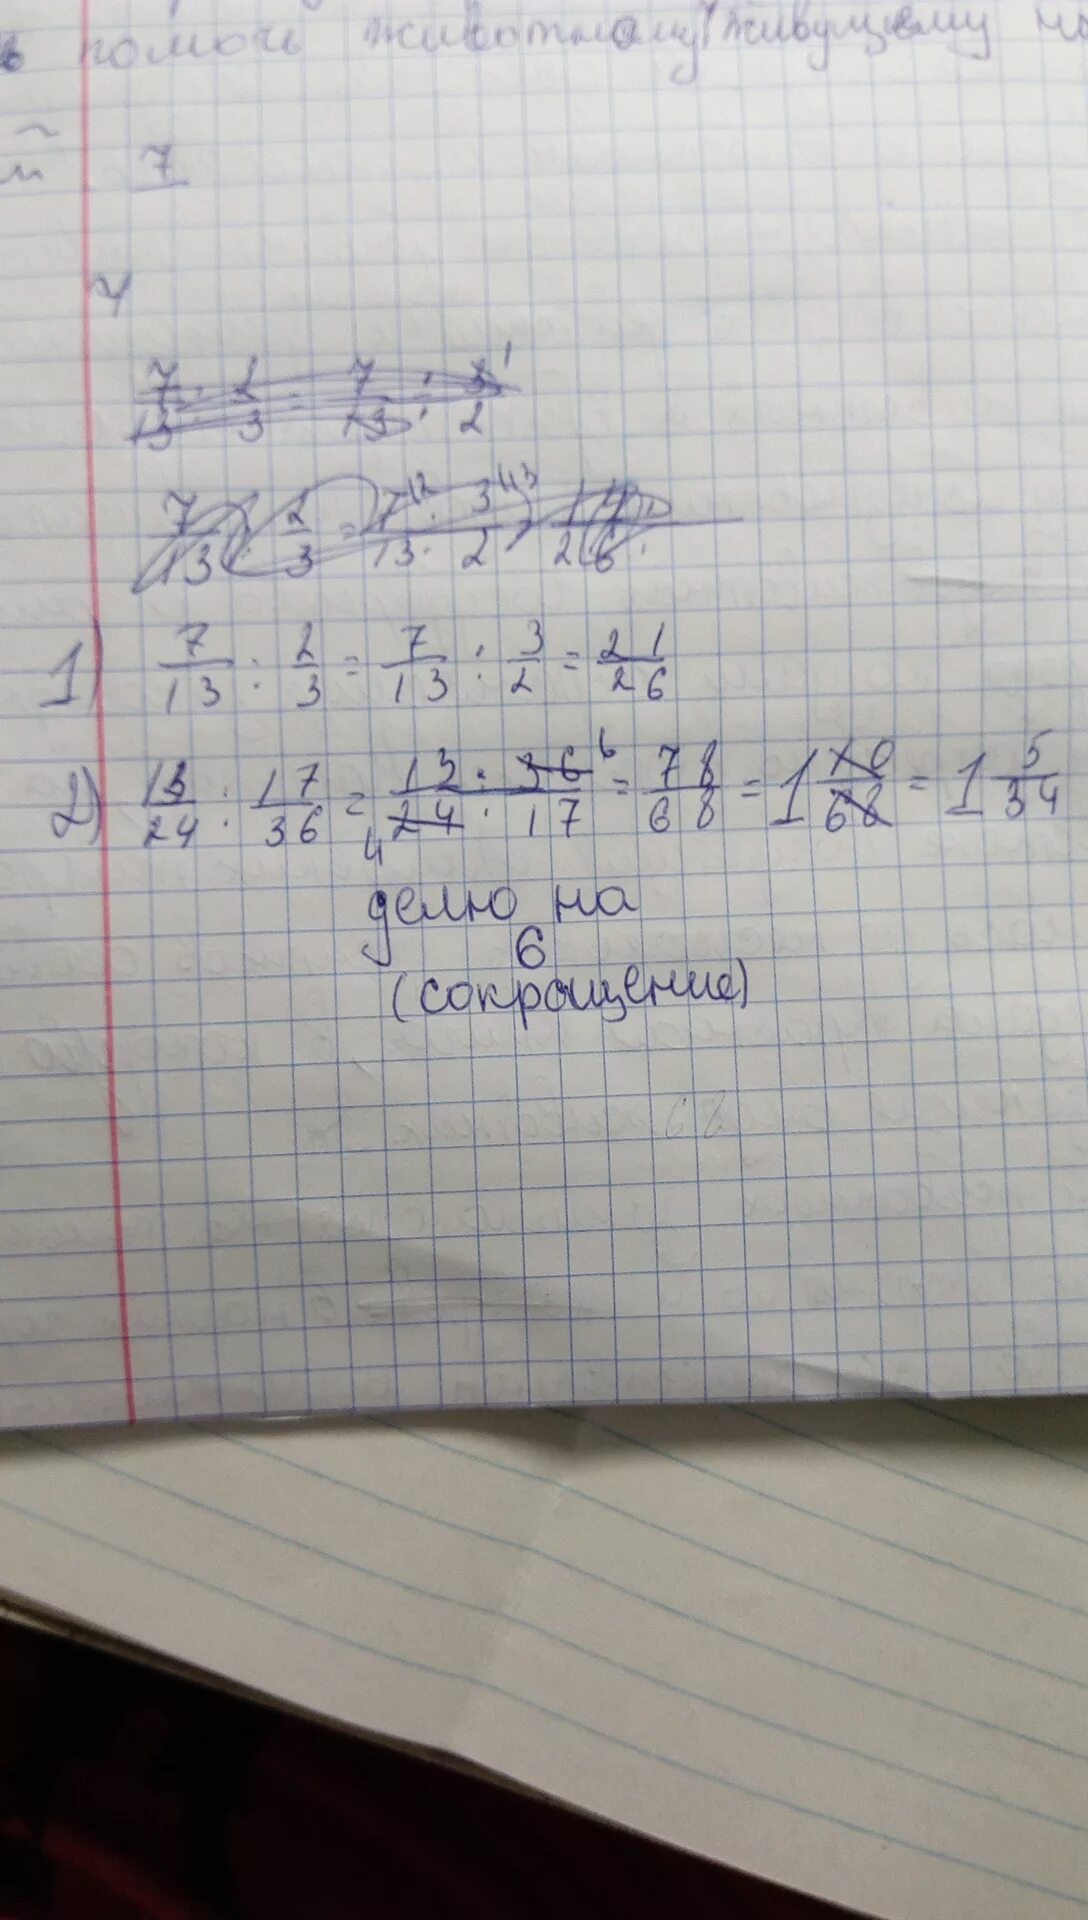 помочь животному живущему
7
7/13 : 2/3 = 7/13 : 3/2
1) 7/13 : 2/3 = 7/13 : 3/2 = 21/26
2) 13/24 : 17/36 = 13 : 36 6 / 4 24 · 17 = 78/68 = 1 10/68 = 1 5/34
делю на
6
(сокращение)